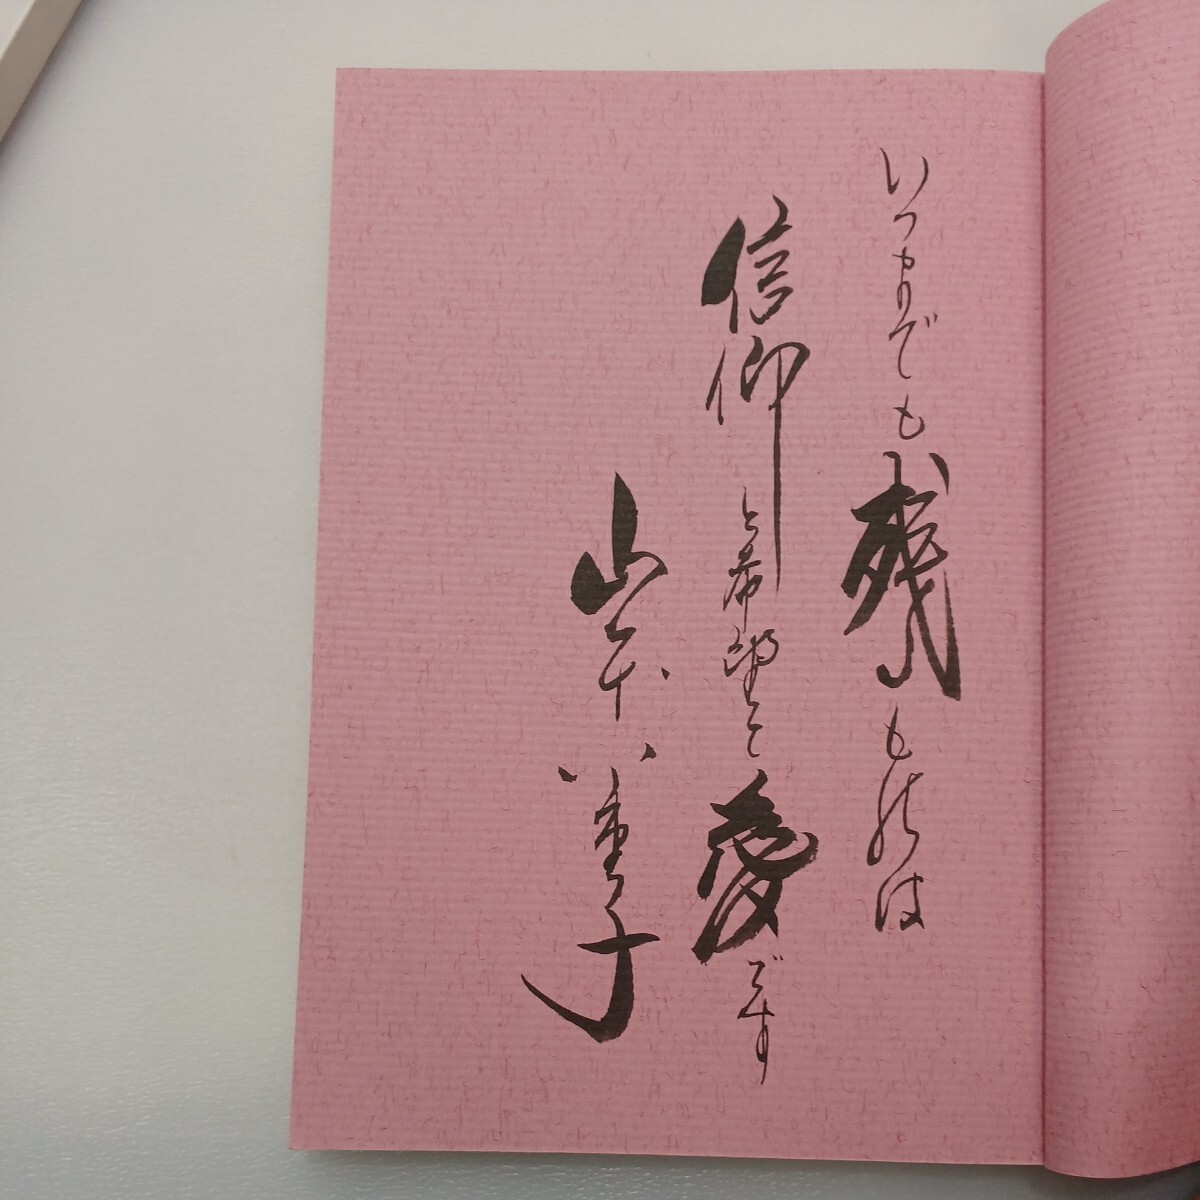 いつまでも残るものは
信仰と希望と愛です
山本八重子